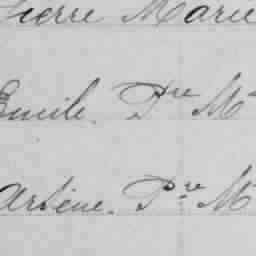 Pierre Marie
Emile. Pre M
Arsène. Pre M